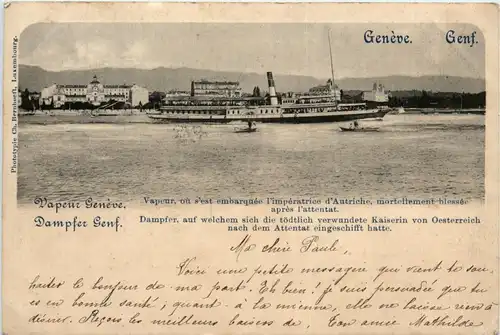 Genève. Genf.
Phototypie Ch. Bernhoeft, Luxembourg.
Vapeur Genève.
Dampfer Genf.
Vapeur, où s'est embarquée l'impératrice d'Autriche, mortellement blessée
après l'attentat.
Dampfer, auf welchem sich die tödtlich verwundete Kaiserin von Oesterreich
nach dem Attentat eingeschifft hatte.
Ma chère Paule,
Voici une petite messagère qui va te sou-
haiter le bonjour de ma part. Eh bien! je suis persuadée que tu
es en bonne santé; quant à la mienne, elle ne laisse rien à
désirer. Reçois les meilleurs baisers de. Ton amie Mathilde